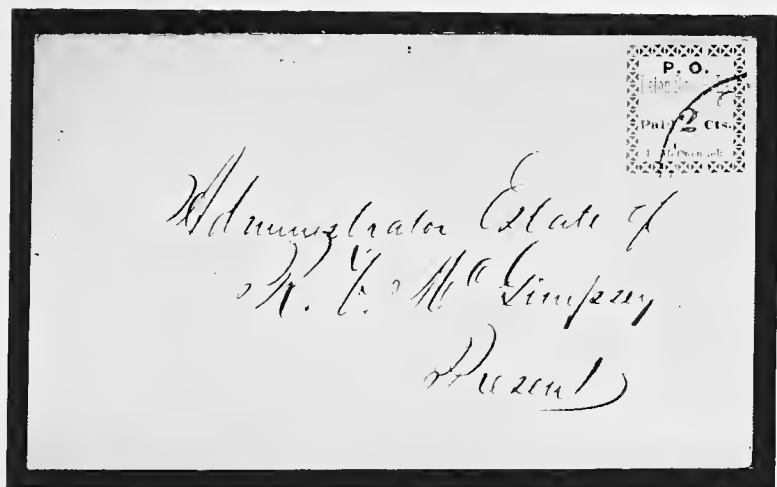 P. O.
Paid 2 Cts.
J. McCormick
Administrator Estate of
R. C. McGimpsey
Present